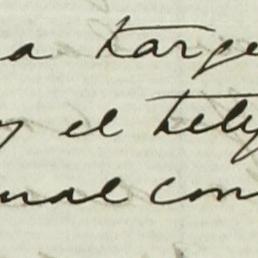 a targe
y el tely
ual con